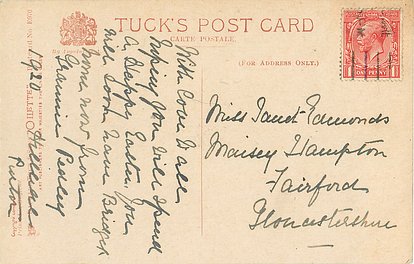 TUCK'S POST CARD
CARTE POSTALE
(FOR ADDRESS ONLY.)
With love to all
hoping you will spend
a Happy Easter. You
will soon have Bridget
home now from
Grannie
1920
Miss Janet Edmonds
Maisey Hampton
Fairford
Gloucestershire
ONE PENNY